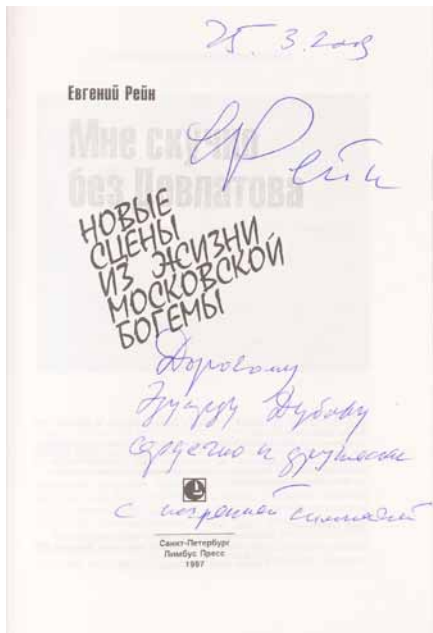 25.3.2009
Евгений Рейн
ЕРейн
Мне скучно
без Довлатова
НОВЫЕ
СЦЕНЫ
ИЗ ЖИЗНИ
МОСКОВСКОЙ
БОГЕМЫ
Дорогому
Эдуарду Дубову
сердечно и дружески
с искренней симпатией
Санкт-Петербург
Лимбус Пресс
1997